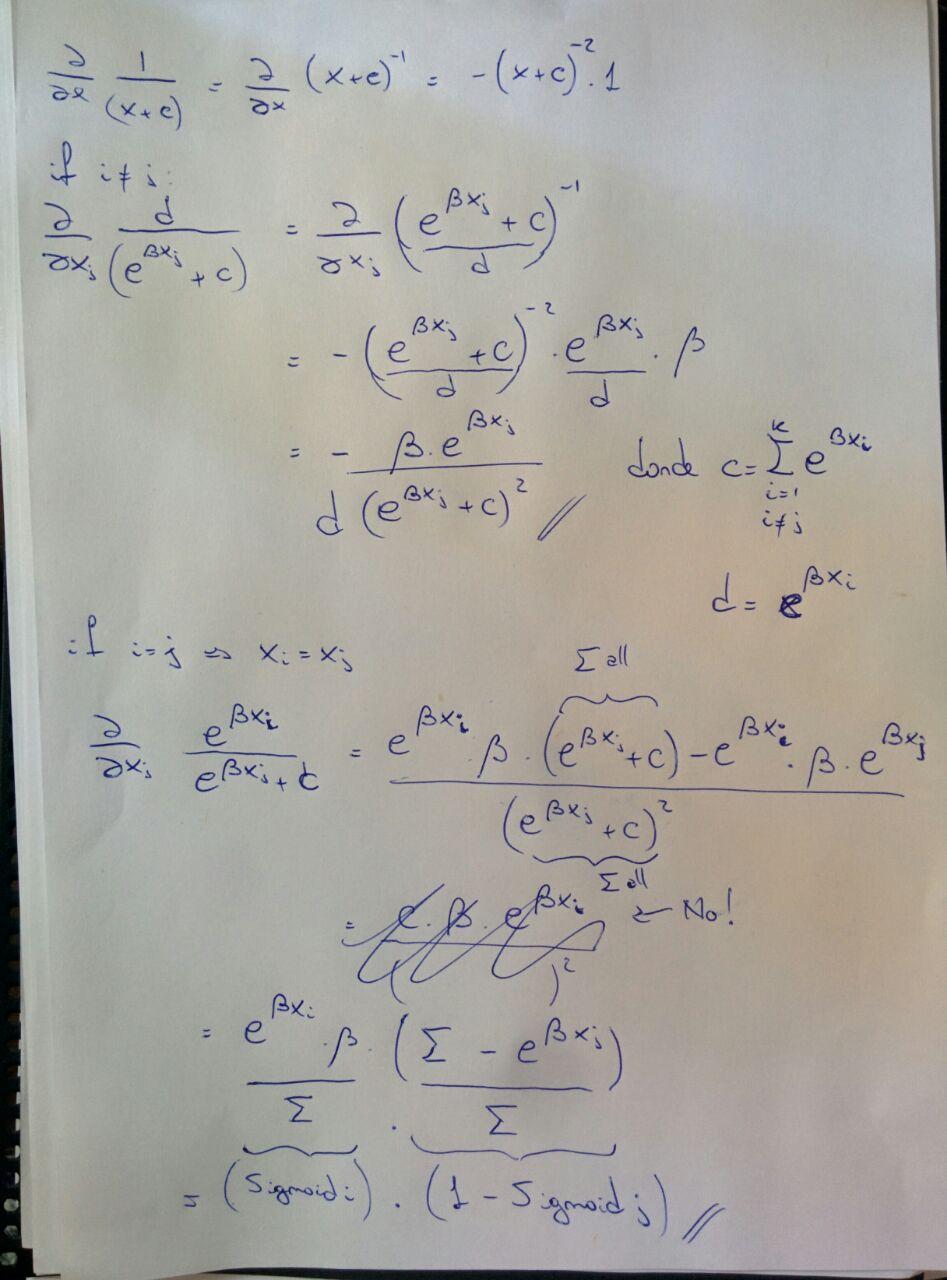 ∂/∂x 1/(x+c) = ∂/∂x (x+c)^-1 = -(x+c)^-2 · 1
if i≠j:
∂/∂xj d/(e^βxj + c) = ∂/∂xj ((e^βxj + c)/d)^-1
= -((e^βxj + c)/d)^-2 · e^βxj/d · β
= - β·e^βxj / d(e^βxj + c)^2 // donde c = Σ_{i=1, i≠j}^{k} e^βxi
d = e^βxi
if i=j ⇒ xi = xj
Σ all
∂/∂xj e^βxi/(e^βxj + c) = (e^βxi · β · (e^βxj + c) - e^βxi · β · e^βxj) / (e^βxj + c)^2
Σ all
= c · β · e^βxi / ( )^2 ← No!
= e^βxi · β / Σ · (Σ - e^βxj) / Σ
= (Sigmoid i) · (1 - Sigmoid j) //